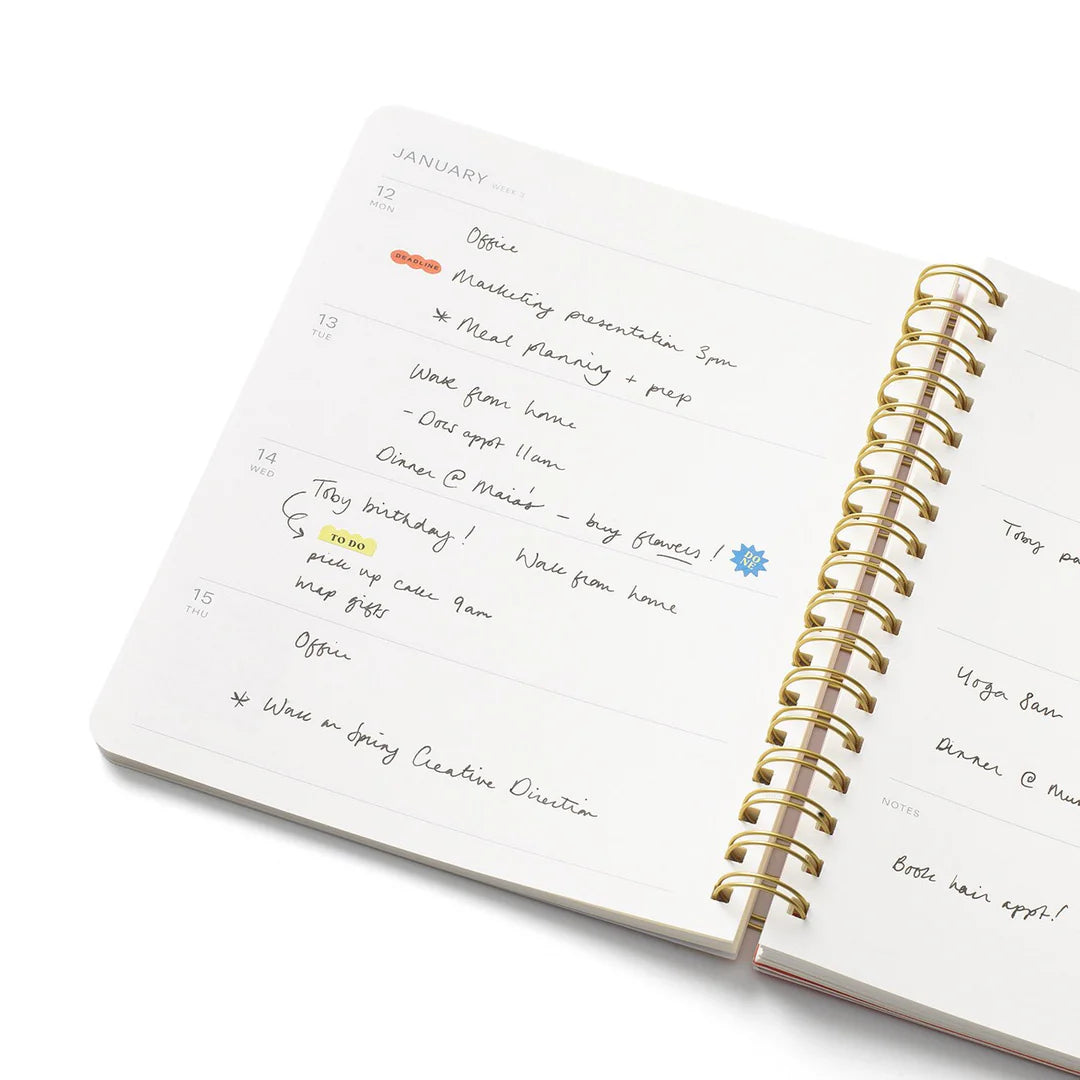 JANUARY WEEK 3
12
MON
Office
DEADLINE
Marketing presentation 3pm
* Meal planning + prep
13
TUE
Work from home
- Docs appt 11am
Dinner @ Maia's - buy flowers !
DONE
14
WED
Toby birthday !
Work from home
TO DO
pick up cake 9am
wrap gifts
15
THU
Office
* Work on Spring Creative Direction
Toby
Yoga 8am
Dinner @
NOTES
Book hair appt!